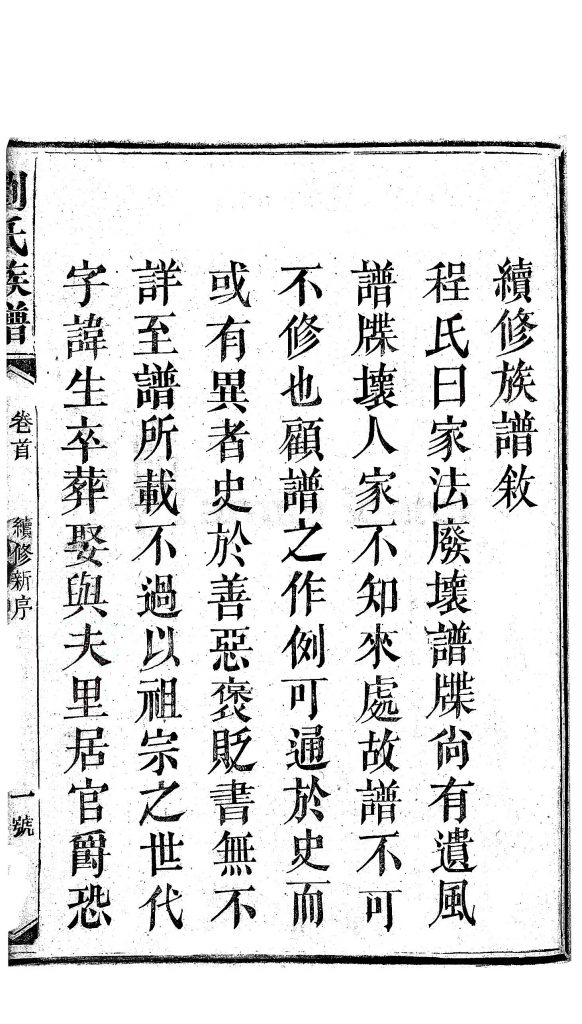 續修族譜敘
程氏曰家法廢壞譜牒尚有遺風
譜牒壞人家不知來處故譜不可
不修也顧譜之作例可通於史而
或有異者史於善惡褒貶書無不
詳至譜所載不過以祖宗之世代
字諱生卒葬娶與夫里居官爵恐
劉氏族譜
卷首
續修新序
一號